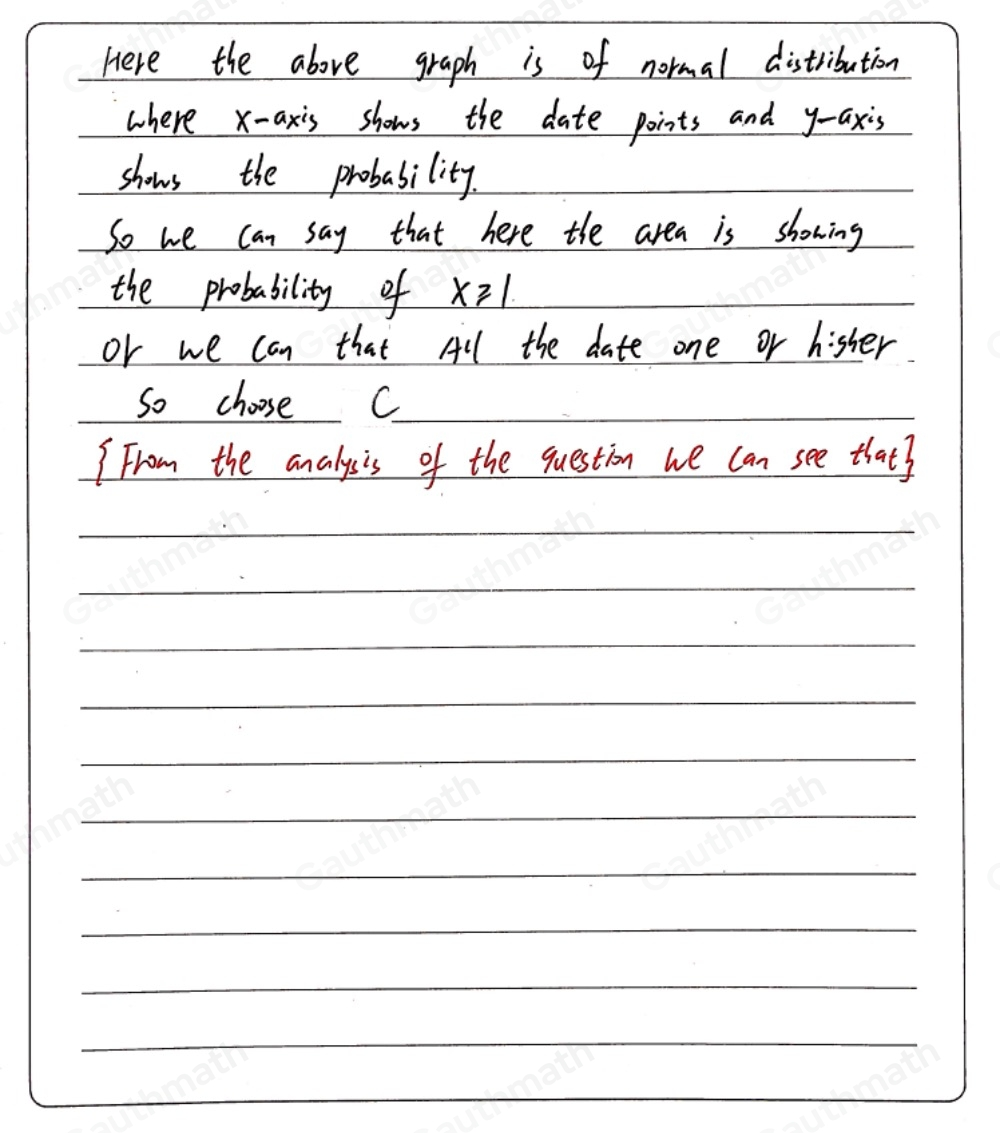 Here the above graph is of normal distribution
where x-axis shows the date points and y-axis
shows the probability.
So we can say that here the area is showing
the probability of X≥1
or we can that All the date one or higher
So choose C
{From the analysis of the question we can see that}
Gauthmath